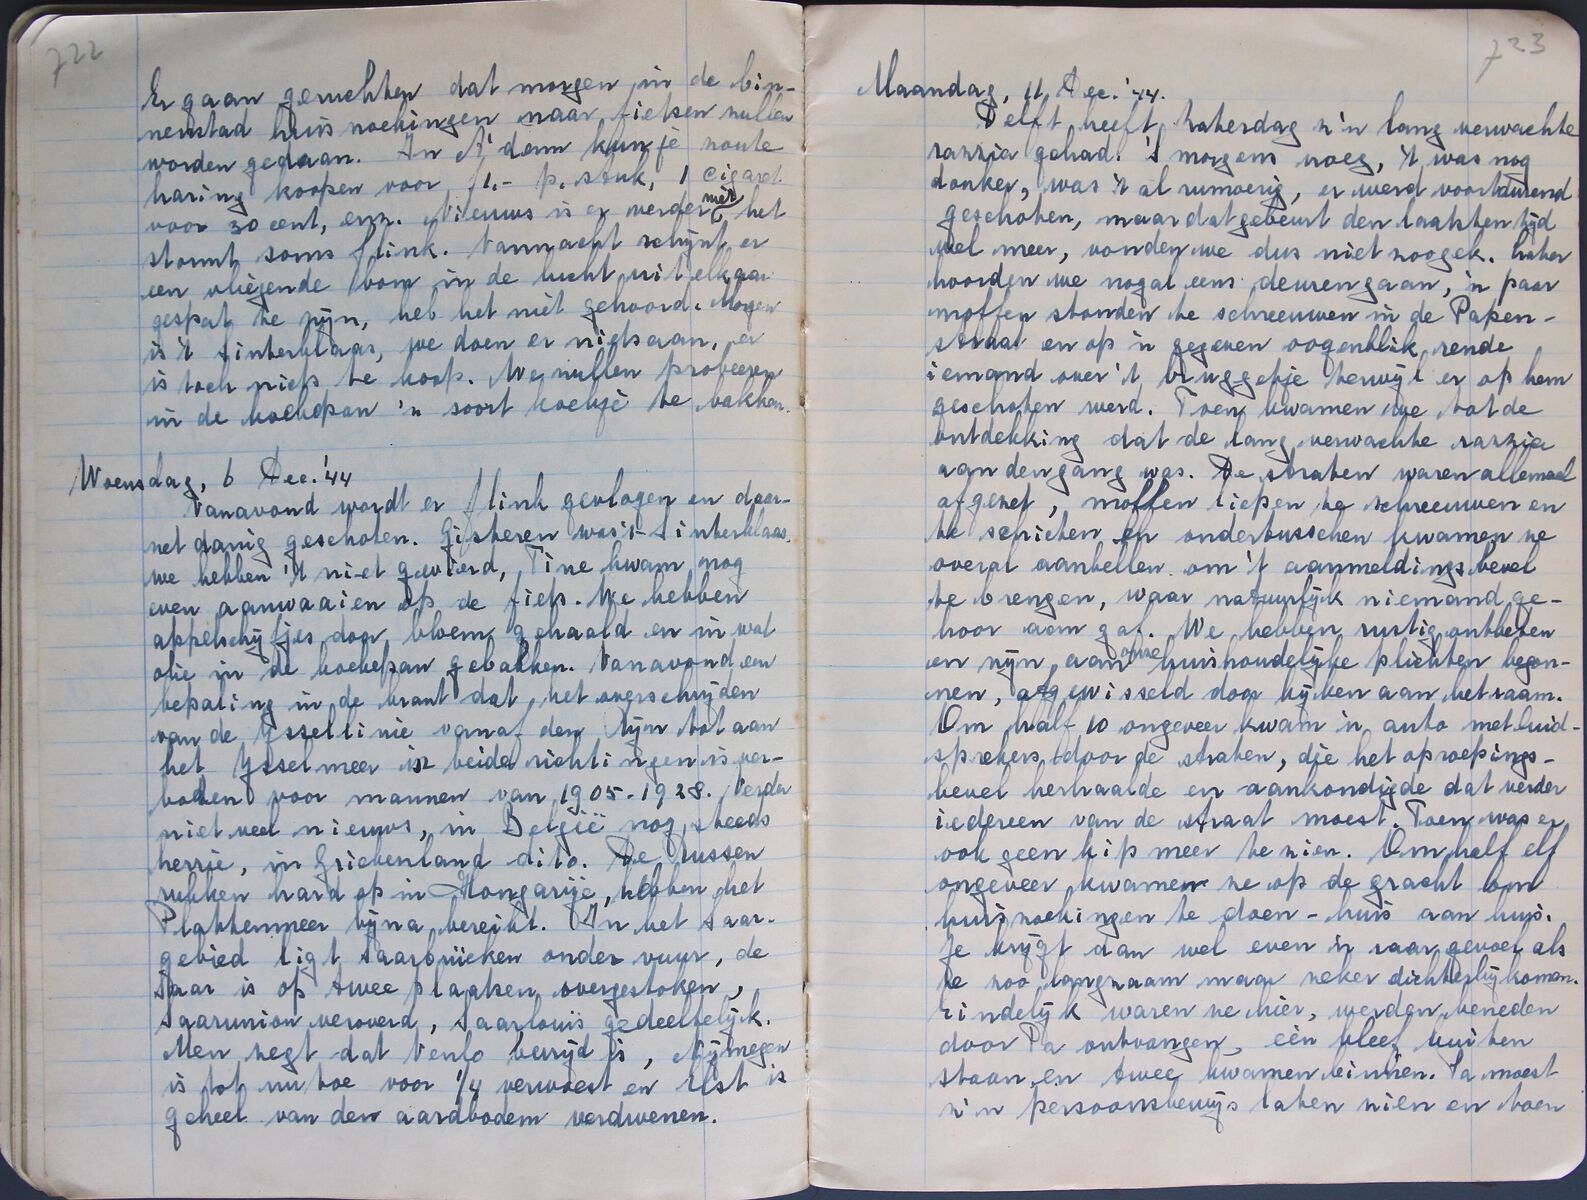 722
Er gaan geruchten dat morgen in de bin-
nenstad huiszoekingen naar fietsen zullen
worden gedaan. In A'dam kun je zoute
haring koopen voor f1.- p. stuk, 1 cigaret
voor 30 cent, enz. Nieuws is er verder niet, het
stormt soms flink. Vannacht schijnt er
een vliegende bom in de lucht uit elkaar
gespat te zijn, heb het niet gehoord. Morgen
is 't Sinterklaas, we doen er niets aan, er
is toch niets te koop. We zullen probeeren
in de koekepan 'n soort koekje te bakken.
Woensdag, 6 Dec. '44
Vanavond wordt er flink gevlogen en daar-
net danig geschoten. Gisteren was 't Sinterklaas,
we hebben 't niet gevierd, Tine kwam nog
even aanwaaien op de fiets. We hebben
appelschijfjes door bloem gehaald en in wat
olie in de koekepan gebakken. Vanavond een
bepaling in de krant dat het overschrijden
van de IJssellinie vanaf den Rijn tot aan
het IJsselmeer in beide richtingen is ver-
boden voor mannen van 1905-1928. Verder
niet veel nieuws, in België nog steeds
herrie, in Griekenland dito. De Russen
rukken hard op in Hongarije, hebben het
Plattenmeer bijna bereikt. In het Saar-
gebied ligt Saarbrücken onder vuur, de
Saar is op twee plaatsen overgestoken,
Saarunion veroverd, Saarlouis gedeeltelijk.
Men zegt dat Venlo bevrijd is, Nijmegen
is tot nu toe voor 1/4 verwoest en Elst is
geheel van den aardbodem verdwenen.
723
Maandag, 11 Dec. '44.
Delft heeft Zaterdag z'n lang verwachte
razzia gehad. 's morgens vroeg, 't was nog
donker, was 't al rumoerig, er werd voortdurend
geschoten, maar dat gebeurt den laatsten tijd
wel meer, vonden we dus niet zoo gek. Later
hoorden we nogal eens deuren gaan, 'n paar
moffen stonden te schreeuwen in de Papen-
straat en op 'n gegeven oogenblik rende
iemand over 't bruggetje terwijl er op hem
geschoten werd. Toen kwamen we tot de
ontdekking dat de lang verwachte razzia
aan den gang was. De straten waren allemaal
afgezet, moffen liepen te schreeuwen en
te schieten en ondertusschen kwamen ze
overal aanbellen om 't aanmeldingsbevel
te brengen, waar natuurlijk niemand ge-
hoor aan gaf. We hebben rustig ontbeten
en zijn aan onze huishoudelijke plichten begon-
nen, afgewisseld door kijken aan het raam.
Om half 10 ongeveer kwam 'n auto met luid-
sprekers door de straten, die het oproepings-
bevel herhaalde en aankondigde dat verder
iedereen van de straat moest. Toen was er
ook geen kip meer te zien. Om half elf
ongeveer kwamen ze op de gracht om
huiszoekingen te doen - huis aan huis.
Je krijgt dan wel even 'n raar gevoel als
ze zoo langzaam maar zeker dichterbij komen.
Eindelijk waren ze hier, werden beneden
door Pa ontvangen, één bleef buiten
staan en twee kwamen binnen. Pa moest
z'n persoonsbewijs laten zien en toen